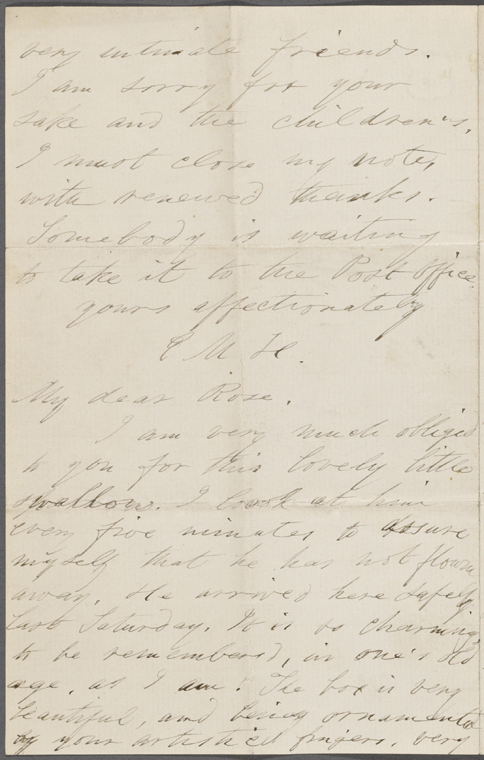 very intimate friends.
I am sorry for your
sake and the children's.
I must close my note,
with renewed thanks.
Somebody is waiting
to take it to the Post Office.
yours affectionately
E M H.
My dear Rose.
I am very much obliged
to you for this lovely little
swallow. I look at him
every five minutes to assure
myself that he has not flown
away. He arrived here safely
last Saturday. It is so charming
to be remembered, in one's old
age, as I am! The box is very
beautiful, and being ornamented
by your artistical fingers, very